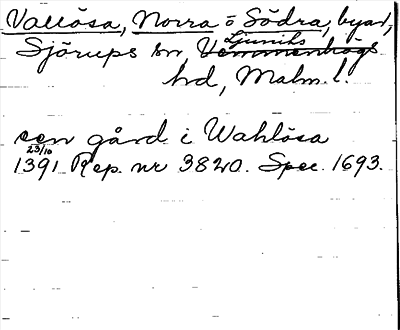 Vallösa, Norra o Södra, byar,
Sjörups sn Vemmenhögs Ljunits
hd, Malm. l.
een gård i Wahlösa
1391 23/10 Rep. nr 3820. Spec. 1693.